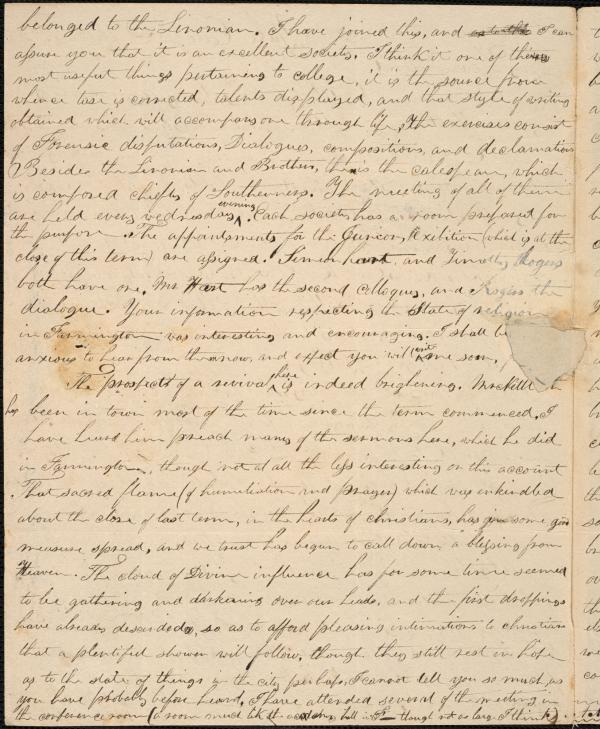 belonged to the Linonian. I have joined this, and I can
assure you that it is an excellent society. I think it one of the
most useful things pertaining to college, it is the source from
whence tase is corrected, talents displayed, and that style of writing
obtained which will accompany one through life. The exercises consist
of Forensic disputations, Dialogues, compositions, and declamations
Besides the Linonian and Brothers, there is the calespean, which
is composed chiefly of Southerners. The meeting of all of them
are held every wednesday evening. Each society has a room prepared for
the purpose. The appointments for the Junior Exibition (which is at the
close of this term) are assigned. Simeon hart, and Timothy Rogers
both have one. Mr Hart has the second colloquy, and Rogers the
dialogue. Your information respecting the State of religion
in Farmington was interesting and encouraging. I shall be
anxious to hear from there now, and expect you will write me soon.
The prospect of a revival here is indeed brightening. Mr
has been in town most of the time since the term commenced. I
have heard him preach many of the sermons here, which he did
in Farmington, though not at all the less interesting on this account
That sacred flame (of humiliation and prayer) which was enkindled
about the close of last term, in the hearts of christians, has in some
measure spread, and we trust has begun to call down a blessing from
Heaven. The cloud of Divine influence has for some time seemed
to be gathering and darkening over our heads, and the first droppings
have already descended, so as to afford pleasing intimations to christians
that a plentiful shower will follow, though they still rest in hope
as to the state of things in the city perhaps, I cannot tell you so much, as
you have probably before heard. I have attended several of the meeting in
the conference room (a room much like the academy hall in F— though not as large I think)